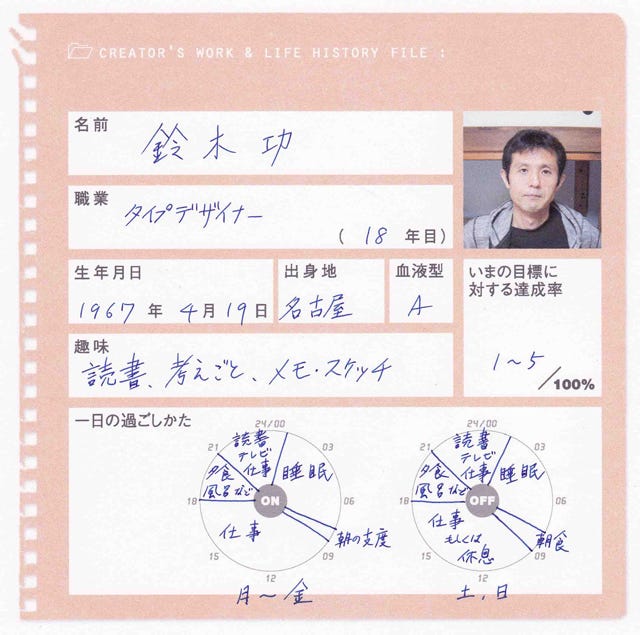 CREATOR'S WORK & LIFE HISTORY FILE :
名前
鈴木 功
職業
タイプデザイナー
( 18 年目)
生年月日
1967 年 4月 19日
出身地
名古屋
血液型
A
いまの目標に
対する達成率
1〜5
/100%
趣味
読書、考えごと、メモ・スケッチ
一日の過ごしかた
24/00
03
06
09
12
15
18
21
ON
読書
テレビ
仕事
睡眠
夕食
風呂など
仕事
朝の支度
月〜金
24/00
03
06
09
12
15
18
21
OFF
読書
テレビ
仕事
睡眠
夕食
風呂など
仕事
もしくは
休息
朝食
土,日